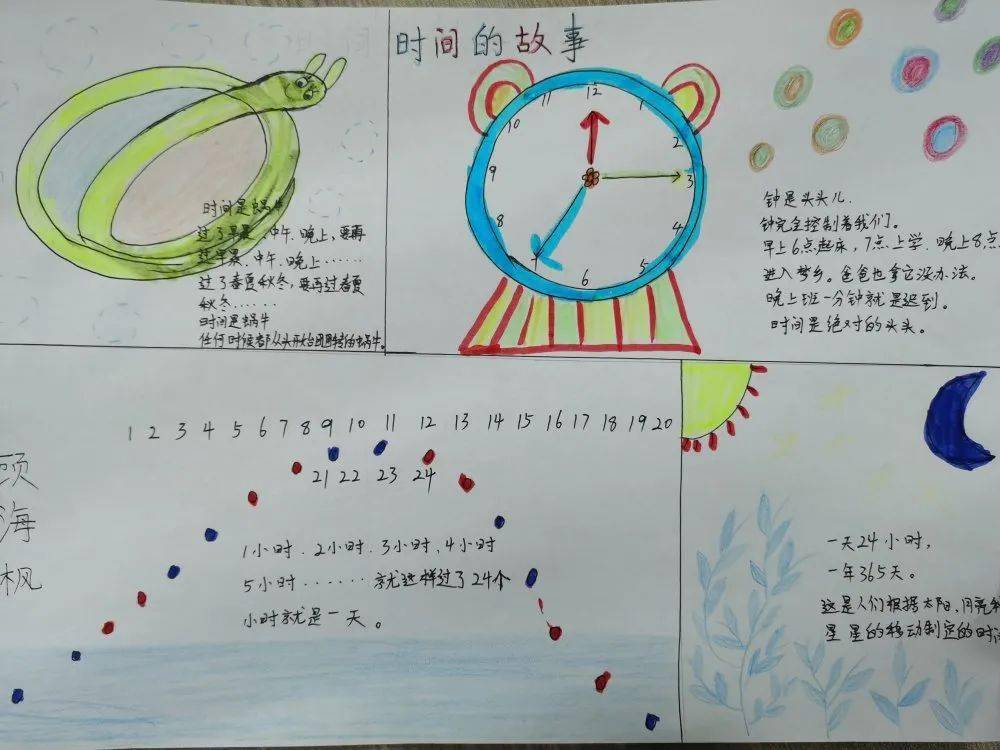 时间的故事
时间是蜗牛
过了早晨、中午、晚上,要再
过早晨、中午、晚上……
过了春夏秋冬,要再过春夏
秋冬……
时间是蜗牛
任何时候都从头开始团团转的蜗牛。
12
1
2
3
4
5
6
7
8
9
10
11
钟是头头儿.
钟完全控制着我们。
早上6点起床,7点上学,晚上8点
进入梦乡。爸爸也拿它没办法。
晚上班一分钟就是迟到。
时间是绝对的头头。
顾
海
枫
1 2 3 4 5 6 7 8 9 10 11 12 13 14 15 16 17 18 19 20
21 22 23 24
1小时.2小时.3小时、4小时
5小时……就这样过了24个
小时就是一天。
一天24小时,
一年365天。
这是人们根据太阳、月亮和
星星的移动制定的时间